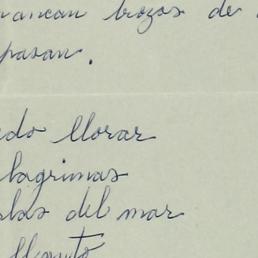 arrancan trozos de
pasan.
edo llorar
lagrimas
olas del mar